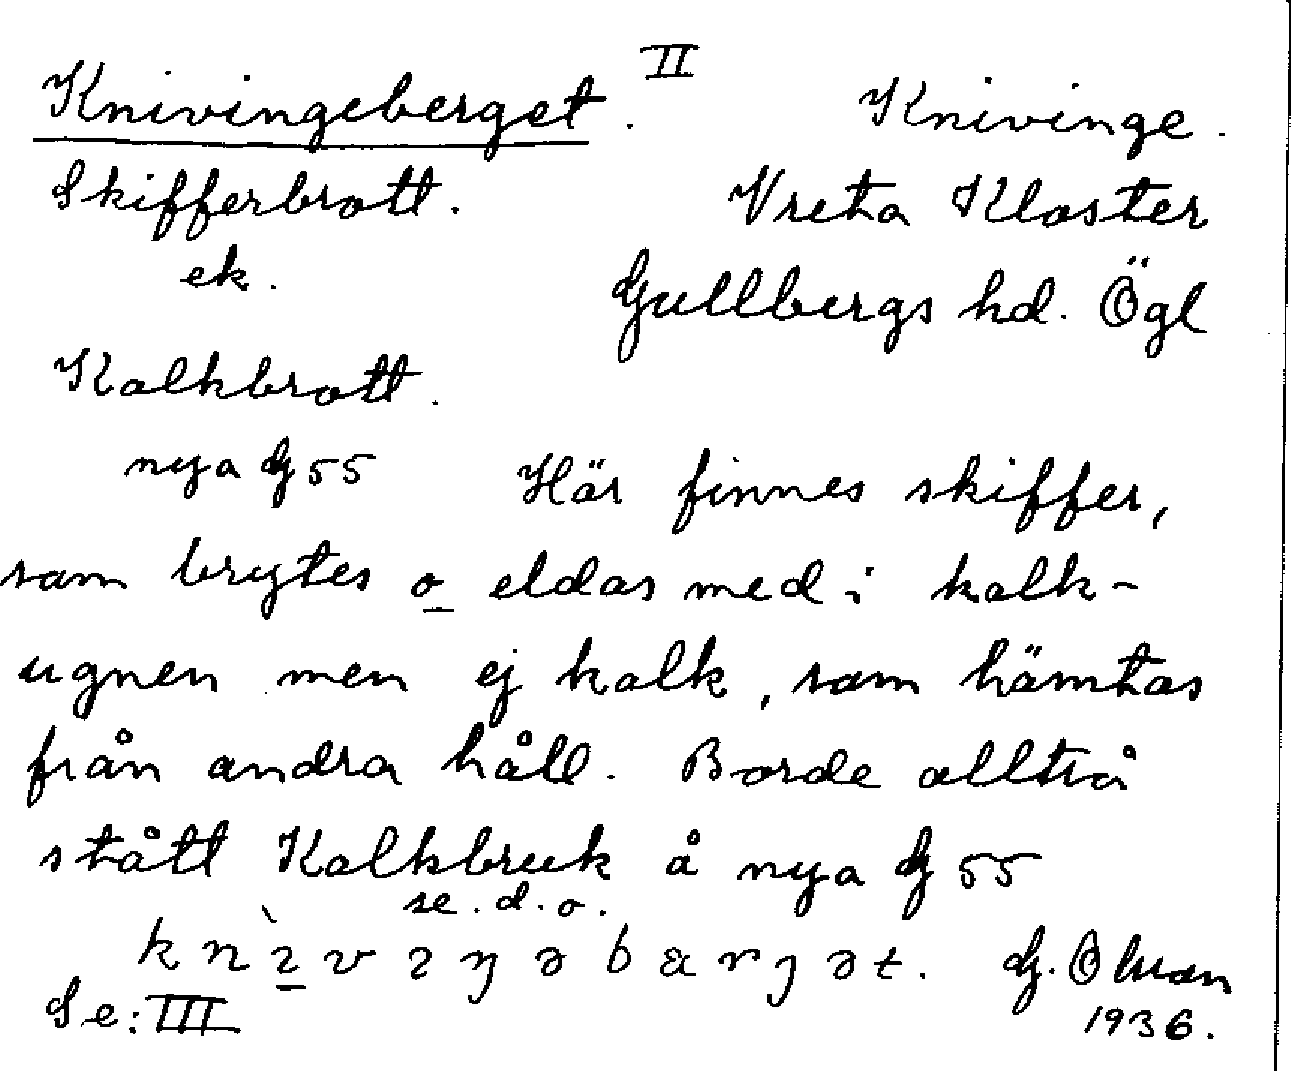 II
Knivingeberget. Knivinge.
Skifferbrott. Vreta Kloster
ek. Gullbergs hd. Ögl
Kalkbrott.
nya G 55 Här finnes skiffer,
som brytes o eldas med i kalk-
ugnen men ej kalk, som hämtas
från andra håll. Borde alltså
stått Kalkbruk å nya G 55
se. d. o.
Se: III G.
1936.